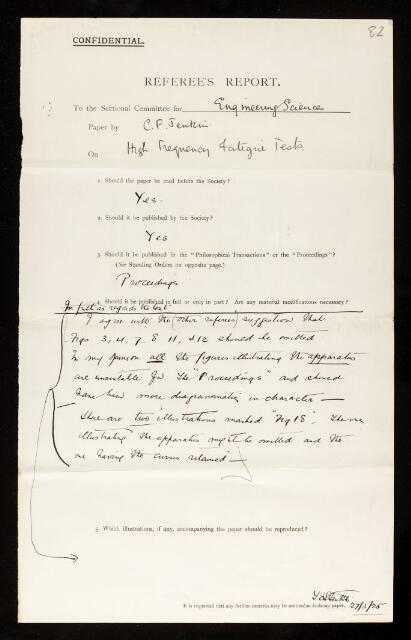 82
CONFIDENTIAL.
REFEREE'S REPORT.
To the Sectional Committee for Engineering Science
Paper by C.F. Jenkin
On High Frequency Fatigue Tests
1. Should the paper be read before the Society?
Yes.
2. Should it be published by the Society?
Yes
3. Should it be published in the "Philosophical Transactions" or the "Proceedings"?
(See Standing Orders on opposite page.)
Proceedings
4. Should it be published in full or only in part? Are any material modifications necessary?
In full as regards the text.
I agree with the (other referee's) suggestion that
Figs 3, 4, 7, 8 11, & 12 should be omitted.
In my opinion all the figures illustrating the apparatus
are unsuitable for the "Proceedings" and should
have been more diagrammatic in character —
There are two illustrations marked "Fig 18". The one
illustrating the apparatus might be omitted and the
one having the curves retained —
5. Which illustrations, if any, accompanying the paper should be reproduced?
It is requested that any further remarks may be written on foolscap paper. 27/5/25